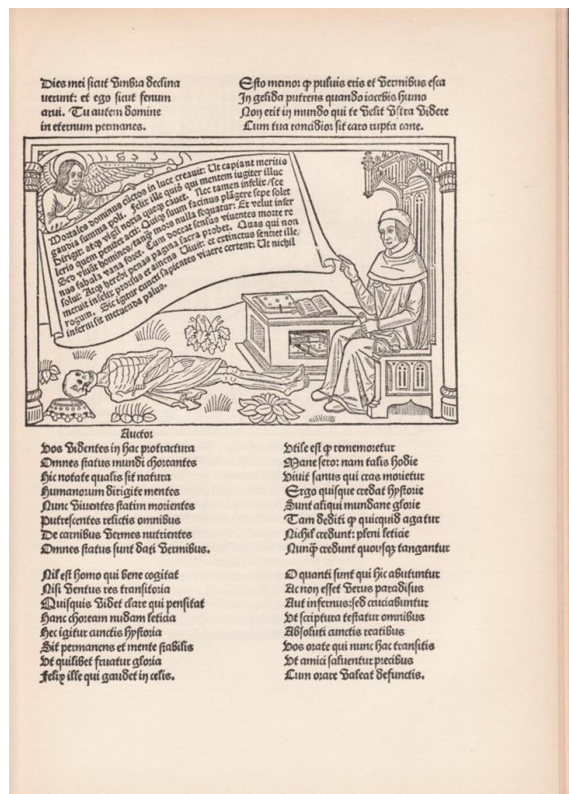 Dies mei sicut Vmbra declina
uerunt: et ego sicut fenum
arui. Tu autem domine
in eternum permanes.
Esto memor ꝙ puluis eris et Vermibus esca
In gelida putrens quando iacebis humo
Non erit in mundo qui te Velit Vltra Videre
Cum tua rancidior sit caro rupta cane.
Mortales dominus cūctos in luce creauit: Ut capiant meritis
gaudia summa poli. Felix ille quidē qui mentem iugiter illuc
Dirigit: atqȝ vigil noxia queqȝ cauet. Nec tamen infelix sce
leris quem penitet acti: Quiqȝ suum facinus plāgere sepe solet
Sed viuūt homines tanqȝ mors nulla sequatur: Et velut infer
nus fabula vana foret. Cum doceat sensus viuentes morte re
solui: Atqȝ herebi penas pagina sacra probet. Quas qui non
metuit infelix prorsus et amens Viuit: et extinctus sentiet ille
rogum. Sic igitur cuncti sapientes viuere certent: Ut nichil
inferni sit metuenda palus.
Auctor
Vos Videntes in hac protractura
Omnes status mundi choreantes
Hic notate qualis sit natura
Humanorum dirigite mentes
Nunc Viuentes statim morientes
Putrescentes relictis omnibus
De carnibus Vermes nutrientes
Omnes status sunt dati Vermibus.
Nil est homo qui bene cogitat
Nisi Ventus res transitoria
Quisquis Videt clare qui pensitat
Hanc choream nudam leticia
Hec igitur cunctis hystoria
Sit permanens et mente stabilis
Vt quilibet fruatur gloria
Felix ille qui gaudet in celis.
Vtile est ꝙ rememoretur
Mane sero: nam talis hodie
Viuit sanus qui cras morietur
Ergo quisque credat hystorie
Sunt aliqui mundane glorie
Tam dediti ꝙ quicquid agatur
Nichil credunt: pleni leticie
Nunqȝ credunt quousqȝ tangantur
O quanti sunt qui hic abutuntur
Ac non esset Verus paradisus
Aut infernus: sed cruciabuntur
Vt scriptura testatur omnibus
Absoluti cunctis reatibus
Vos orate qui nunc hac transitis
Vt amici saluentur precibus
Cum orare Valeat defunctis.